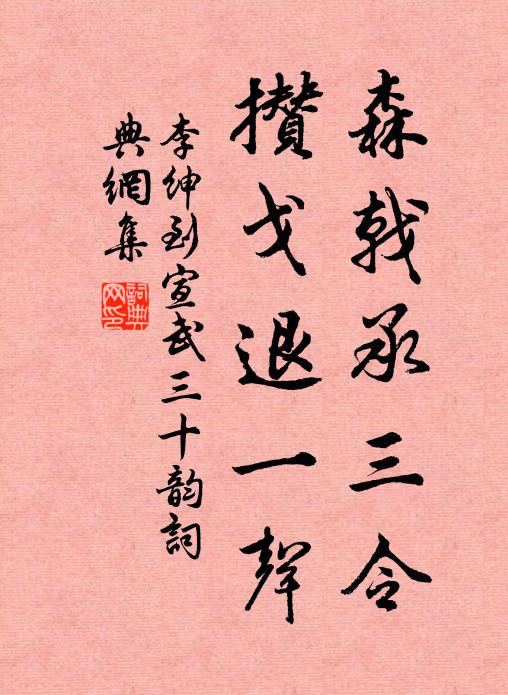 森戟承三令
攢戈退一聲
李紳到宣武三十韵詞
典網集
詞典網印